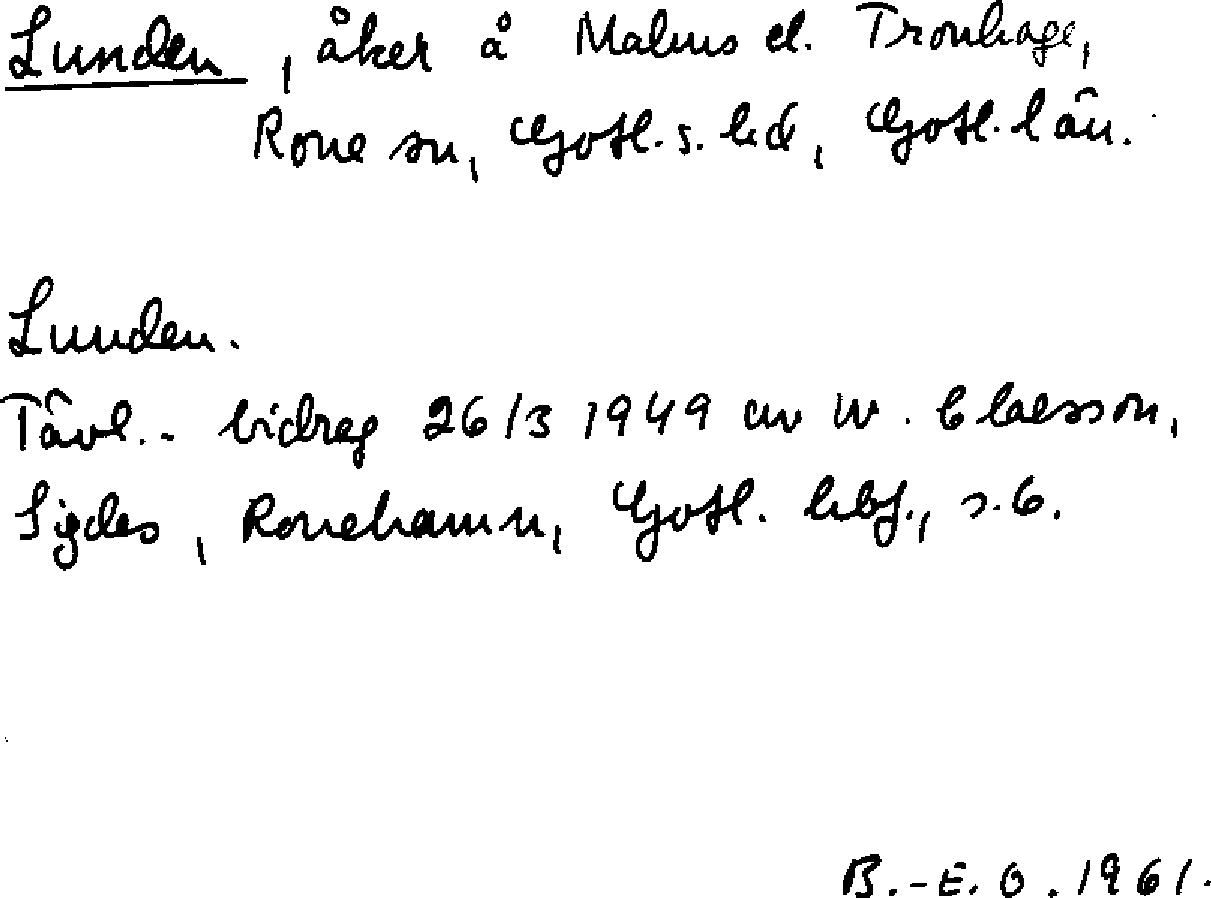 Lunden, åker å Malms el. Tronhage,
Rone sn, Gotl. s. hd, Gotl. län.
Lunden.
Tävl.-bidrag 26/3 1949 av W. Claesson,
Sigdes, Ronehamn, Gotl. hbf., s.6.
B.-E. O. 1961.